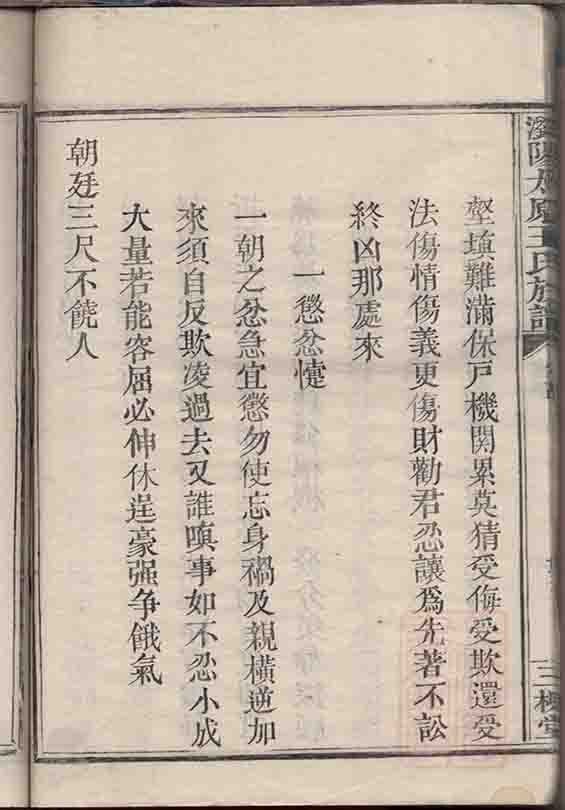 瀏陽太原王氏族譜
三槐堂
壑填難滿保戶機關累莫猜受侮受欺還受
法傷情傷義更傷財勸君忍讓為先著不訟
終凶那處來
一懲忿懥
一朝之忿急宜懲勿使忘身禍及親橫逆加
來須自反欺凌過去又誰嗔事如不忍小成
大量若能容屈必伸休逞豪强争餓氣
朝廷三尺不饒人